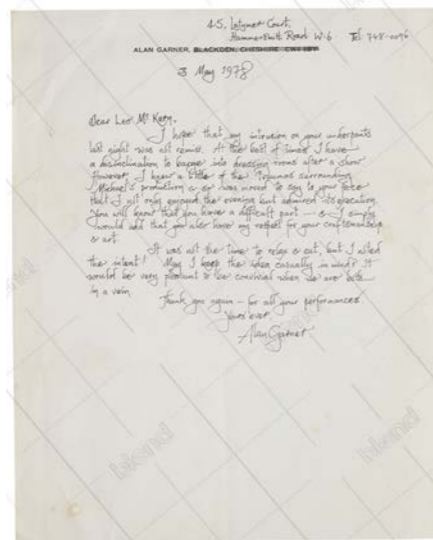 45, Latymer Court,
Hammersmith Road W.6 Tel 748-0096
ALAN GARNER, BLACKDEN, CHESHIRE
3 May 1978
Dear Leo McKern,
I hope that my intrusion on your underpants
last night was not remiss. At the best of times I have
a disinclination to barge into dressing rooms after a show
However, I knew a little of the surrounding
Michael's production & so was moved to say to your face
that I not only enjoyed the evening but admired its execution.
You will know that you have a difficult part — & I simply
would add that you also have my respect for your craftsmanship
& art.
It was not the time to relax & eat, but I
the intent! May I keep the idea casually in mind? It
would be very pleasant to be convivial when we are both
in a vein.
Thank you again – for all your performances.
Yours ever,
Alan Garner
blond
blond